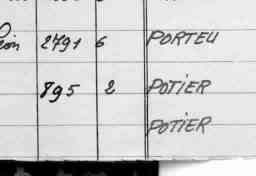 2791 6 PORTEU
895 2 POTIER
POTIER